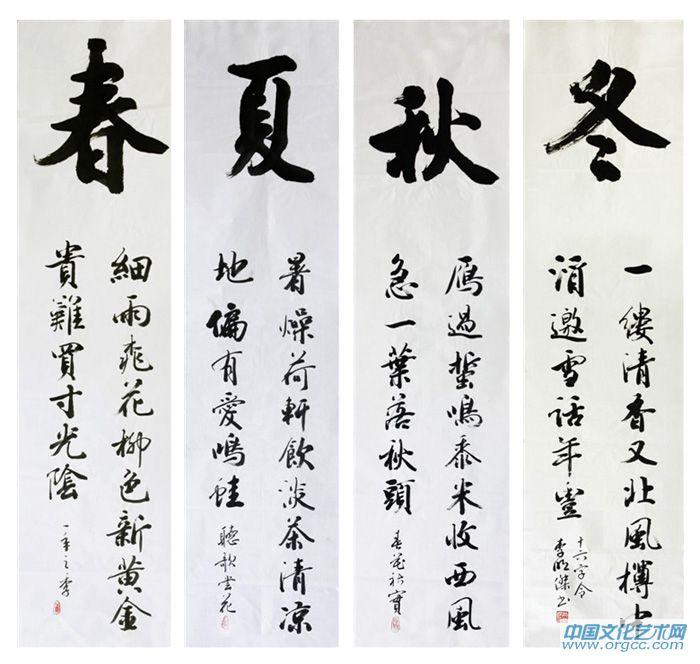 春
細雨桃花柳色新黄金
貴難買寸光陰
一年之季
夏
暑燥荷軒飲淡茶清凉
地偏有愛鳴蛙
聽歌賞花
秋
雁過蛩鳴黍米收西風
急一葉落秋頭
春華秋實
冬
一縷清香又北風樽上
酒邀雪話年豐
十六字令
李明傑书
中国文化艺术网
www.orgcc.com